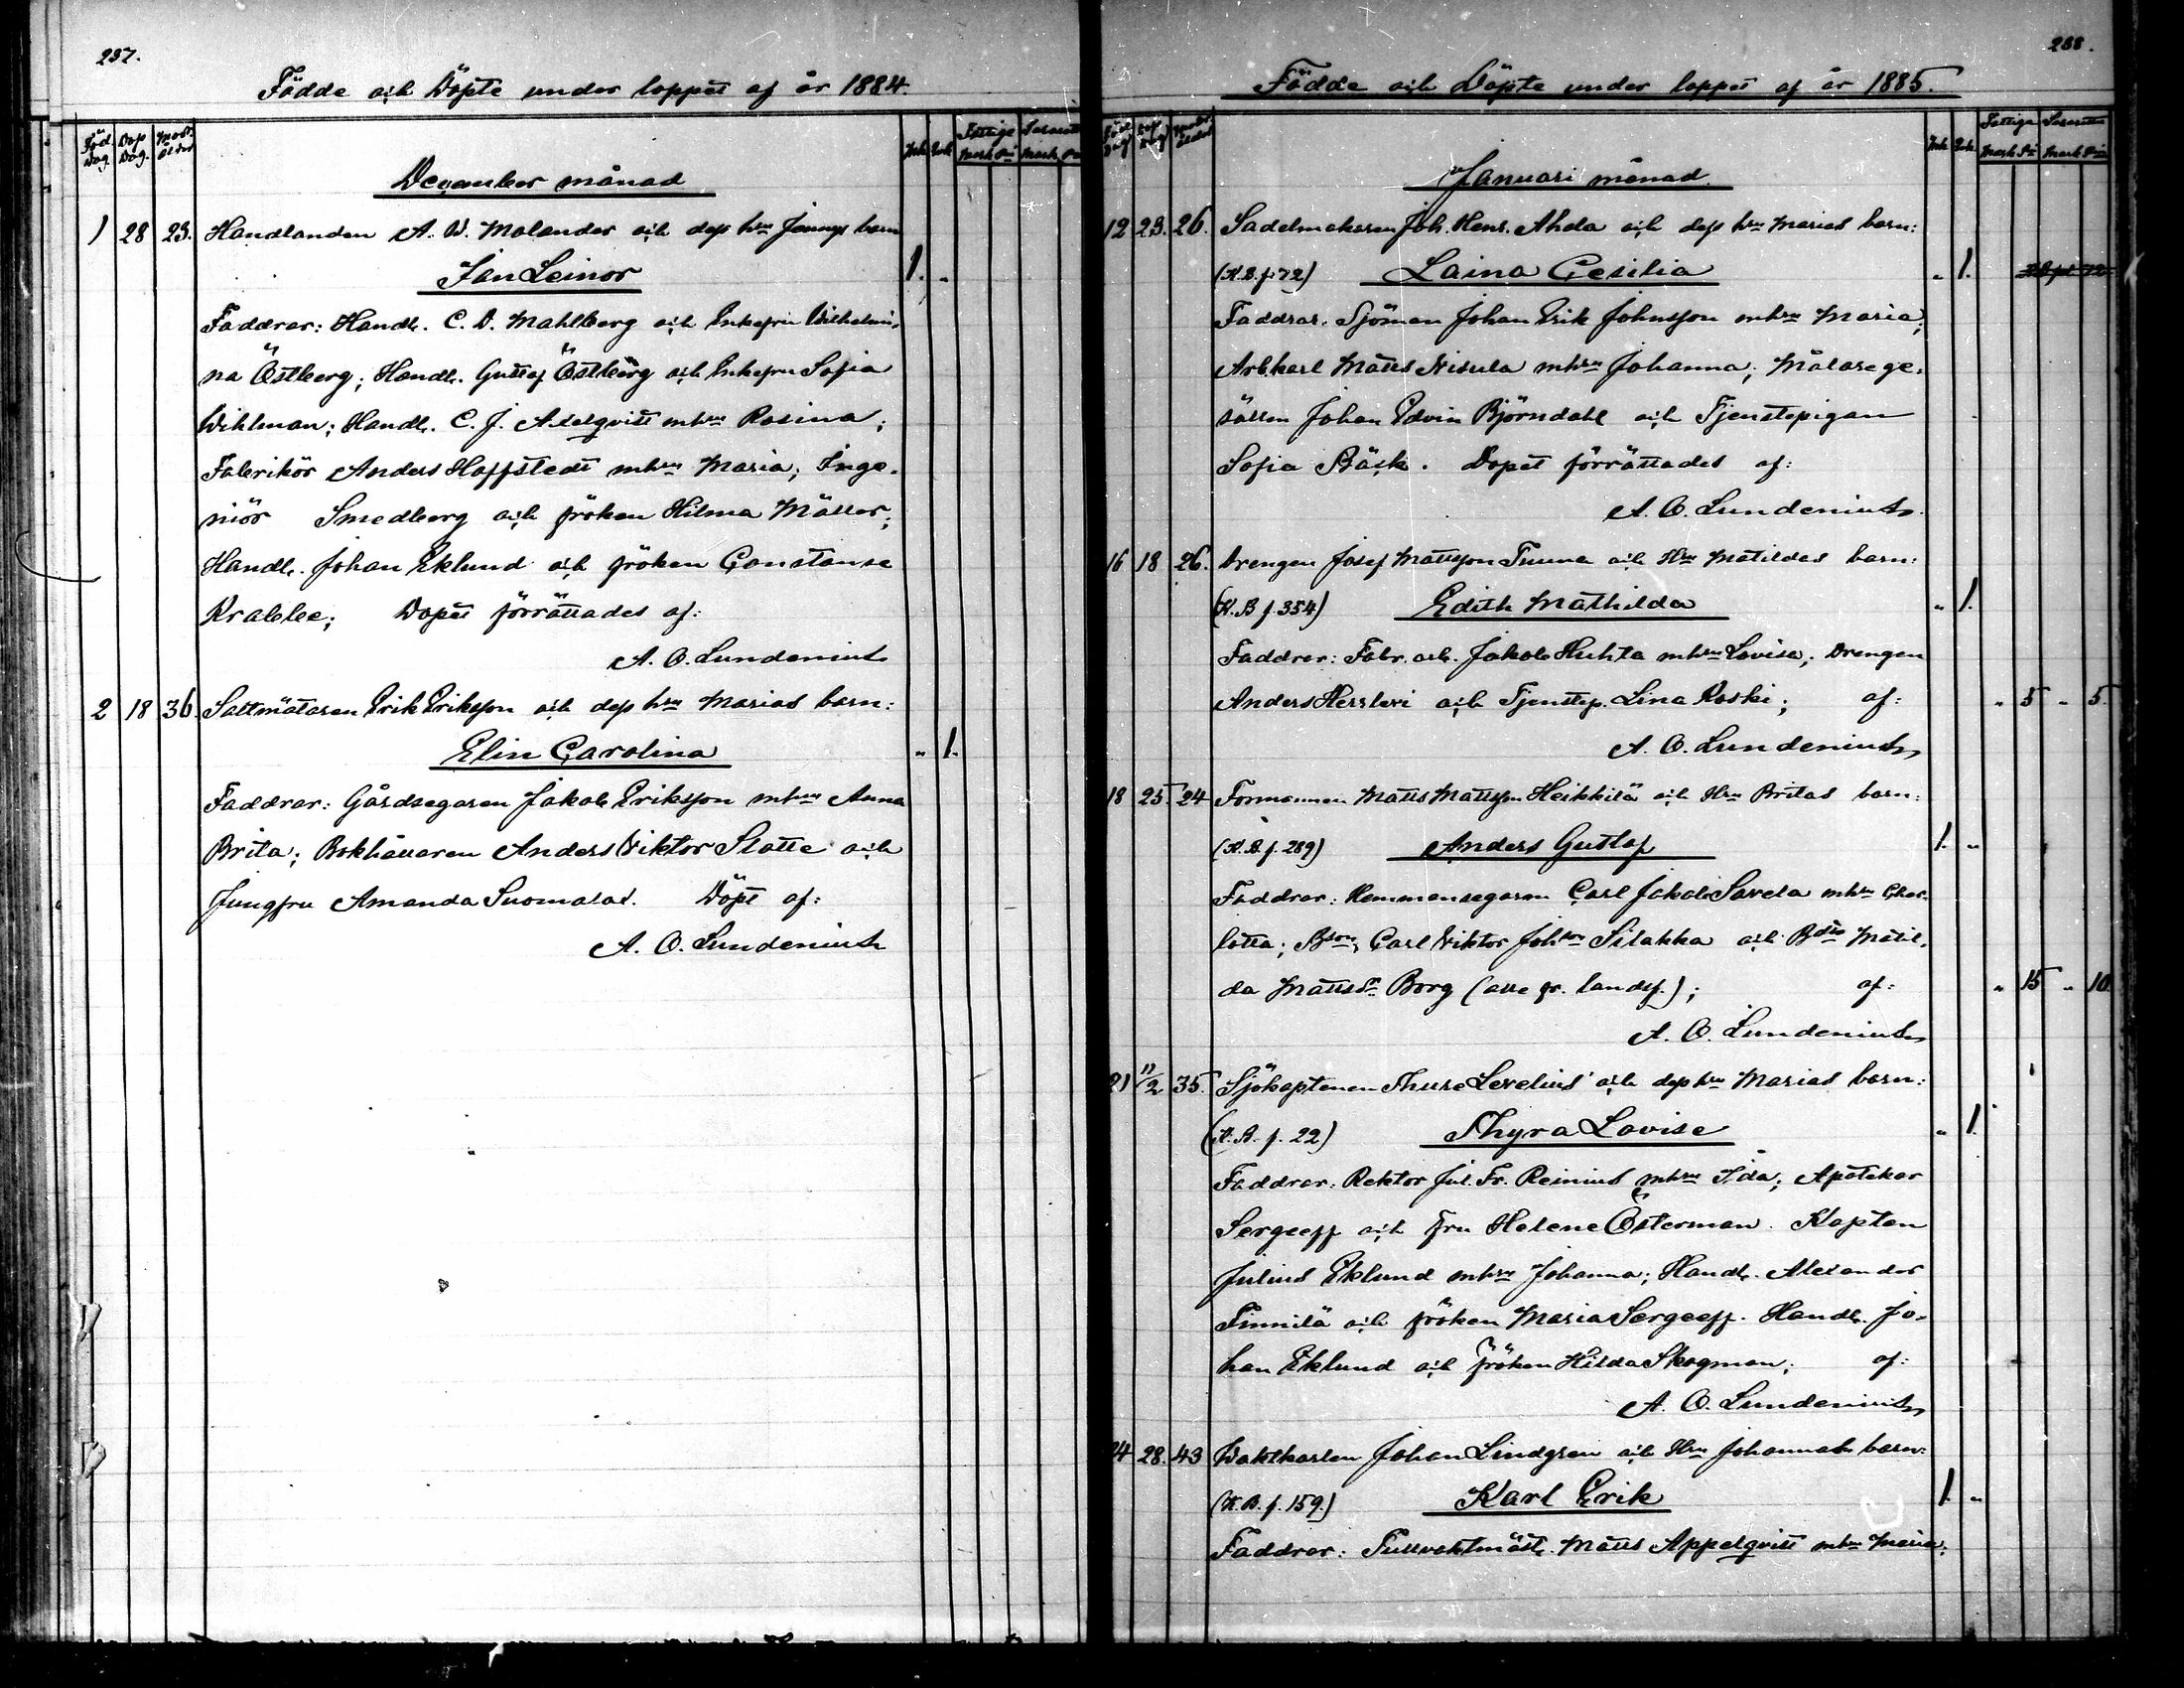 237.
Födde och Döpte under loppet af år 1884.
Föd. Dag. Dop Dag. Modr. Ålder Mk. Qvk. Fattige Mark Pi Mark
December månad
1 28 23. Handlanden A. W. Molander och dess hru Jennys barn
Jan Leinor 1. "
Faddrar: Handl. C. D. Mahlberg och Enkefru Wilhelmi,
na Östberg; Handl. Gustaf Östberg och Enkefru Sofia
Wihlman; Handl. C. J. Axelqvist mhru Rosina;
Fabrikör Anders Hoffstedt mhru Maria; Inge-
niör Smedberg och fröken Hilma Möller;
Handl. Johan Eklund och fröken Constanse
Krabbe; Dopet förrättades af:
A. O. Lundenius
2 18 36. Saltmätaren Erik Eriksson och dess hru Marias barn:
Elin Carolina " 1.
Faddrar: Gårdsegaren Jakob Eriksson mhru Anna
Brita; Bokhållaren Anders Viktor Slotte och
Jungfru Amanda Suomalas. Döpt af:
A. O. Lundenius
238.
Födde och Döpte under loppet af år 1885.
Föd. Dag Dop Dag Modr. Ålder Mk. Qvk. Fattige Mark Pi Mark Pi
Januari månad.
12 23. 26. Sadelmakaren Joh. Henr. Ahda och dess hru Marias barn:
(K.B. f. 72) Laina Cesilia " 1.
Faddrar. Sjöman Johan Erik Johnsson mhru Maria;
Arb.karl Matts Nisula mhru Johanna; Målarege-
sällen Johan Edvin Björndahl och Tjenstepigan
Sofia Bäck. Dopet förrättades af:
A. O. Lundenius
16 18 26. Drengen Josef Mattsson Tunna och Hru Matildas barn:
(K.B f. 354) Edith Mathilda " 1.
Faddrar: Fabr. arb. Jakob Huhta mhru Lovisa; Drengen
Anders Hersleri och Tjenstep. Lina Koski; af: " 5 " 5.
A. O. Lundenius
18 25. 24 Formannen Matts Mattsson Heikkilä och Hru Britas barn:
(K.B. f. 289) Anders Gustaf 1. "
Faddrar: Hemmansegaren Carl Jakob Savela mhru Char-
lotta; Bson Carl Viktor Johson Silakka och Bdtr Matil-
da Mattsdr Borg (alle fr. landsf.); af: " 15 " 10.
A. O. Lundenius
21 11/2 35. Sjökaptenen Thure Levelius och dess hru Marias barn:
(K.B. f. 22) Thyra Lovise " 1.
Faddrar: Rektor Jul. Fr. Reinius mhru Ida; Apotekar
Sergeeff och Fru Helene Österman. Kapten
Julius Eklund mhru Johanna; Handl. Alexander
Finnilä och fröken Maria Sergeeff. Handl. Jo-
han Eklund och fröken Hilda Skogman; af:
A. O. Lundenius
24 28. 43 Waktkarlen Johan Lindgren och Hru Johannas barn:
(K.B. f. 159.) Karl Erik 1. "
Faddrar: Tullvaktmäst. Matts Appelqvist mhru Maria;